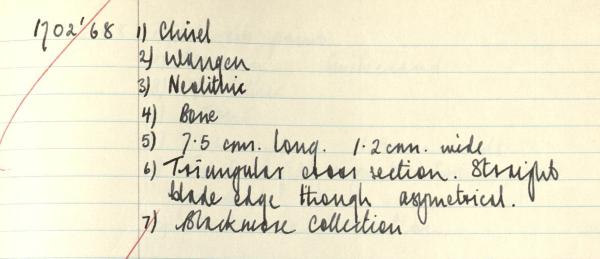 1702'68 1) Chisel
2) Wangen
3) Neolithic
4) Bone
5) 7.5 cms. long. 1.2 cms. wide
6) Triangular cross section. Straight
blade edge though asymetrical.
7) Blackmore Collection